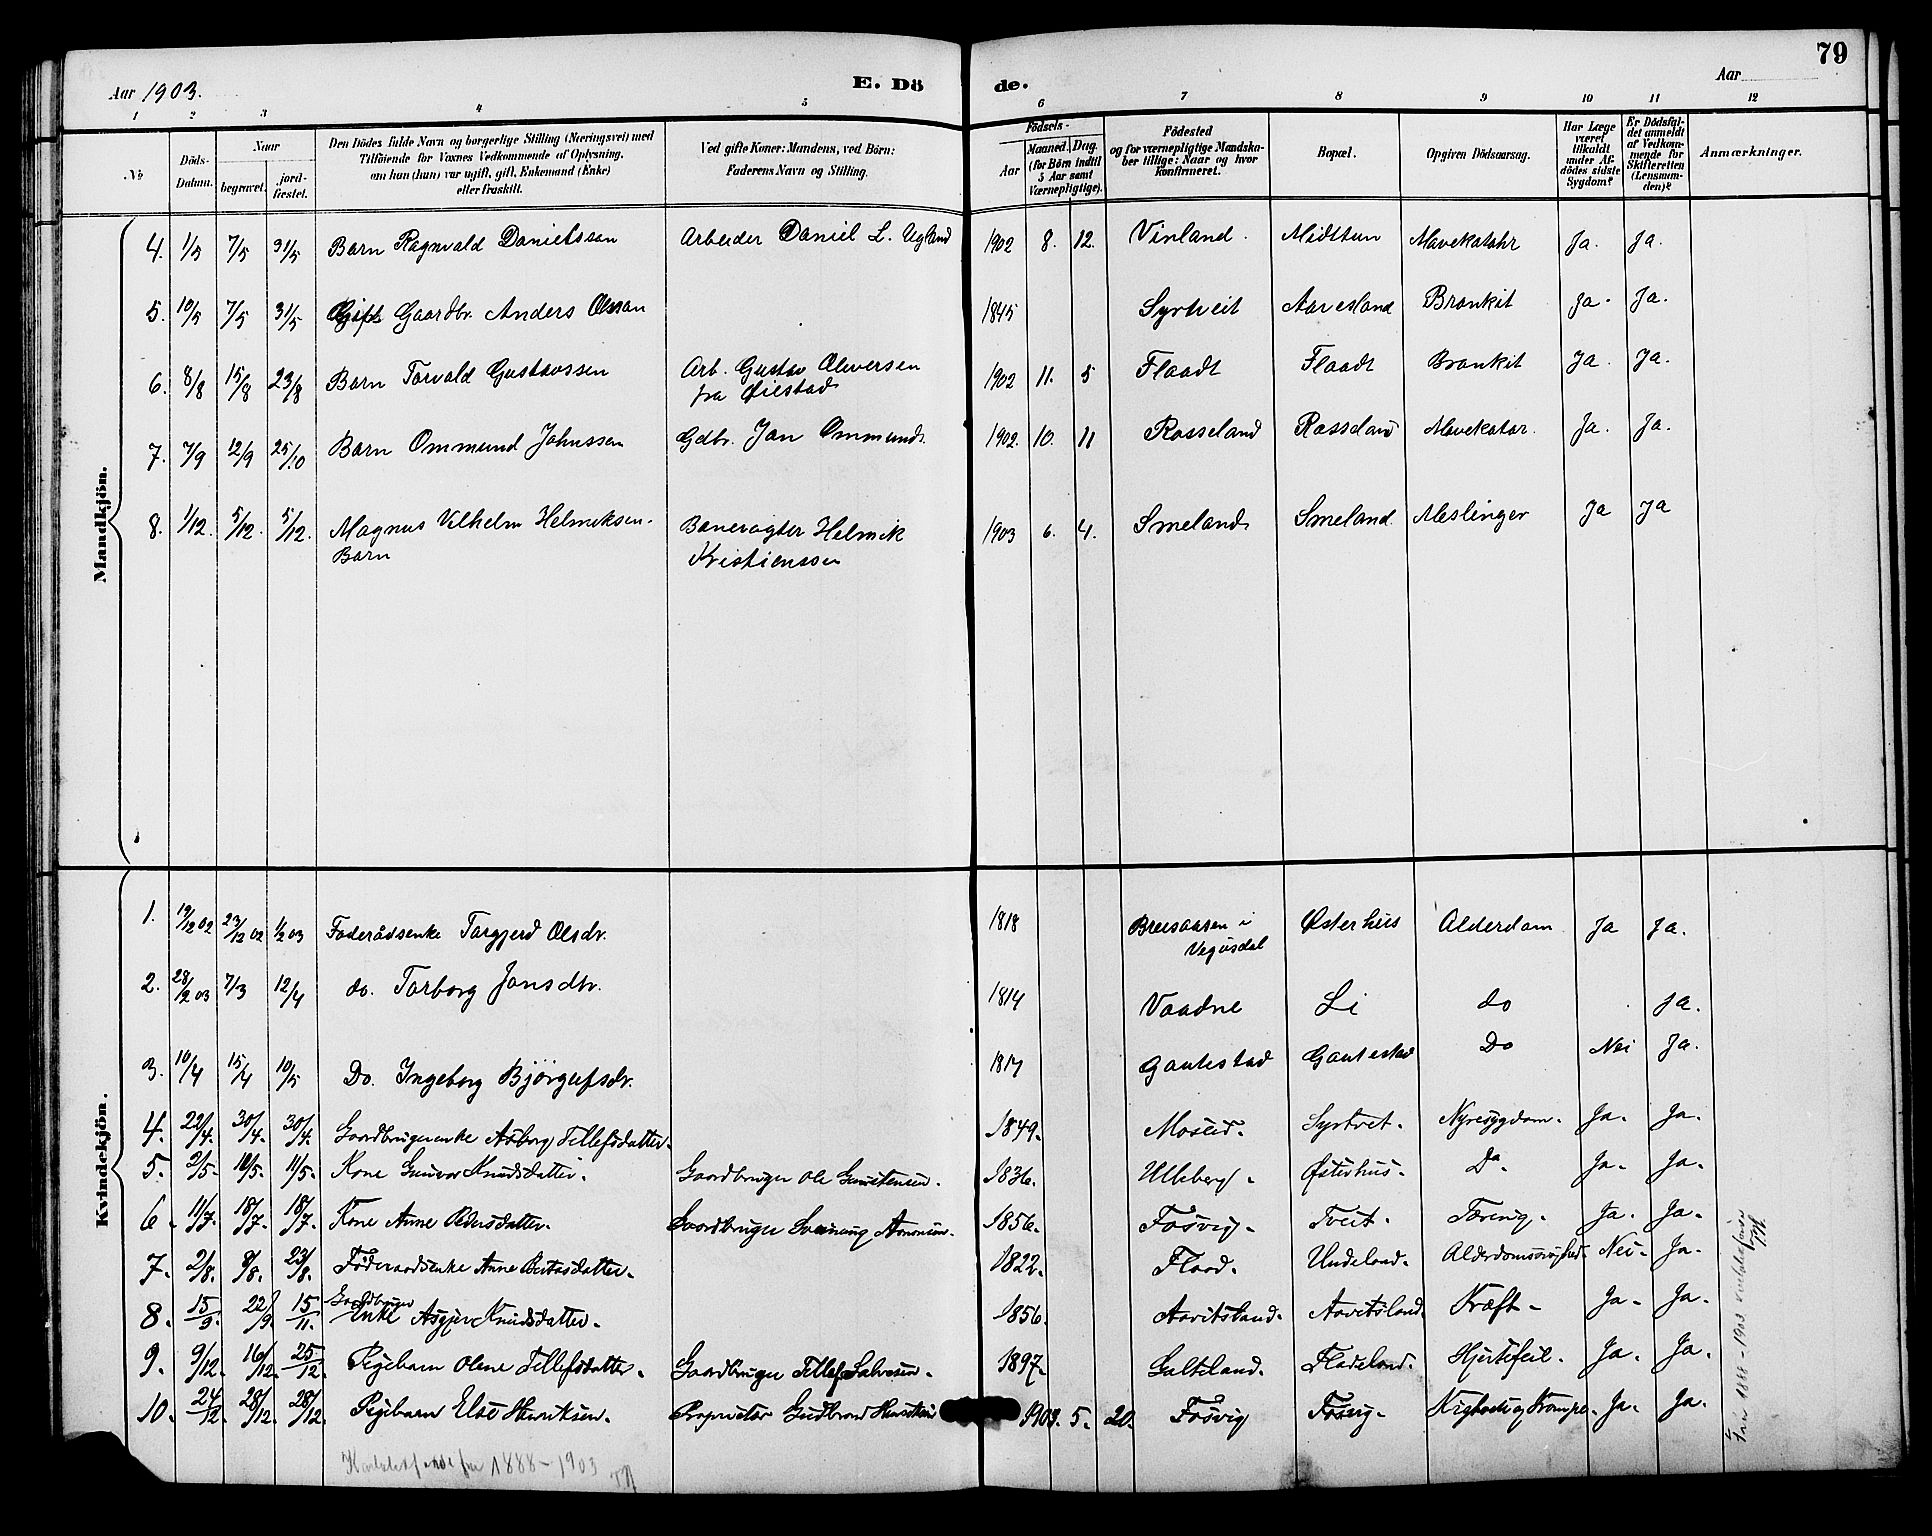 79
Aar 1903.
E. Dö
de.
Aar
1 2 3 4 5 6 7 8 9 10 11 12
No
Döds-
Datum.
Naar
begravet.
jord-
fæstet.
Den Dödes fulde Navn og borgerlige Stilling (Næringsvei) med
Tilföiende for Voxnes Vedkommende af Oplysning,
om han (hun) var ugift, gift, Enkemand (Enke)
eller fraskilt.
Ved gifte Koner: Mandens, ved Börn:
Faderens Navn og Stilling.
Födsels-
Aar
Maaned. Dag.
(for Börn indtil
5 Aar samt
Værnepligtige).
Födested
og for værnepligtige Mandska-
ber tillige: Naar og hvor
konfirmeret.
Bopæl.
Opgiven Dödsaarsag.
Har Læge
været
tilkaldt
under Af-
dödes sidste
Sygdom?
Er Dödsfal-
det anmeldt
af Vedkom-
mende for
Skifteretten
(Lensman-
den)?
Anmærkninger.
Mandkjön.
4. 1/5 7/5 31/5 Barn Ragnvald Danielsson Arbeider Daniel L. Ugland 1902 8. 12. Vinland. Midttun Mavekatahr Ja. Ja.
5. 10/5 7/5 31/5 Gift Gaardbr. Anders Olsson 1845 Syrtveit Aavesland Bronkit Ja. Ja.
6. 8/8 15/8 23/8 Barn Torvald Gustavssen Arb. Gustav Oliversen 1902 11. 5 Flaadt Flaadt Bronkit Ja. Ja.
fra Øiestad
7. 7/9 12/9 25/10 Barn Ommund Johnssen Gdbr. Jon Ommunds. 1902. 10. 11 Rosseland Rosseland Mavekatar. Ja. Ja.
8. 1/12. 5/12. 5/12. Magnus Vilhelm Helmiksen. Banevogter Helmik 1903 6. 4. Smeland Smeland Meslinger Ja Ja
Barn Kristienssen
Kvindekjön.
1. 19/12 02 23/12 02 1/2 03 Foderådsenke Torgjerd Olsdr. 1818 Breisaasen i Østerhus Alderdom Ja Ja.
Vegusdal
2. 28/2 03 7/3 12/4 do. Torborg Jonsdtr. 1814 Vaadne Li do Ja.
3. 10/4 15/4 10/5 Do. Ingeborg Bjørgufsdr. 1817 Gautestad Gautestad Do Nei Ja.
4. 22/4. 30/4. 30/4. Gaardbrugerenke Asborg Tellefsdatter. 1849. Moseid. Syrtvet. Nyresygdom. Ja. Ja.
5. 2/5. 10/5. 11/5. Kone Gunvor Knudsdatter. Gaardbruger Ole Gunstensen. 1836. Ulleberg. Østerhus. Do. Ja. Ja.
6. 11/7. 18/7. 18/7. Kone Anne Pedersdatter. Gaardbruger Svenung Aanonsen. 1856. Fosvig. Tveit. Tæring. Ja. Ja.
7. 2/8. 8/8. 23/8. Føderaadsenke Anne Bertasdatter. 1822. Flaad. Undeland. Alderdomssvaghed. Nei. Ja.
8. 15/9. 22/9. 15/11. Gaardbruger
Enke Asgjer Knudsdatter. 1856. Aavitsland. Aavitsland. Kræft. Ja. Ja.
9. 9/12. 16/12. 25/12. Pigebarn Olene Tellefsdatter. Gaardbruger Tellef Salvesen. 1897. Galteland. Fladeland. Hjertefeil. Ja. Ja.
10. 24/12. 28/12. 28/12. Pigebarn Else Henriksen. Proprietær Gudbrand Henriksen 1903. 5. 20. Fosvig Fosvig. Kighoste og Krampe. Ja. Ja.
1888–1903
Fra 1888–1903